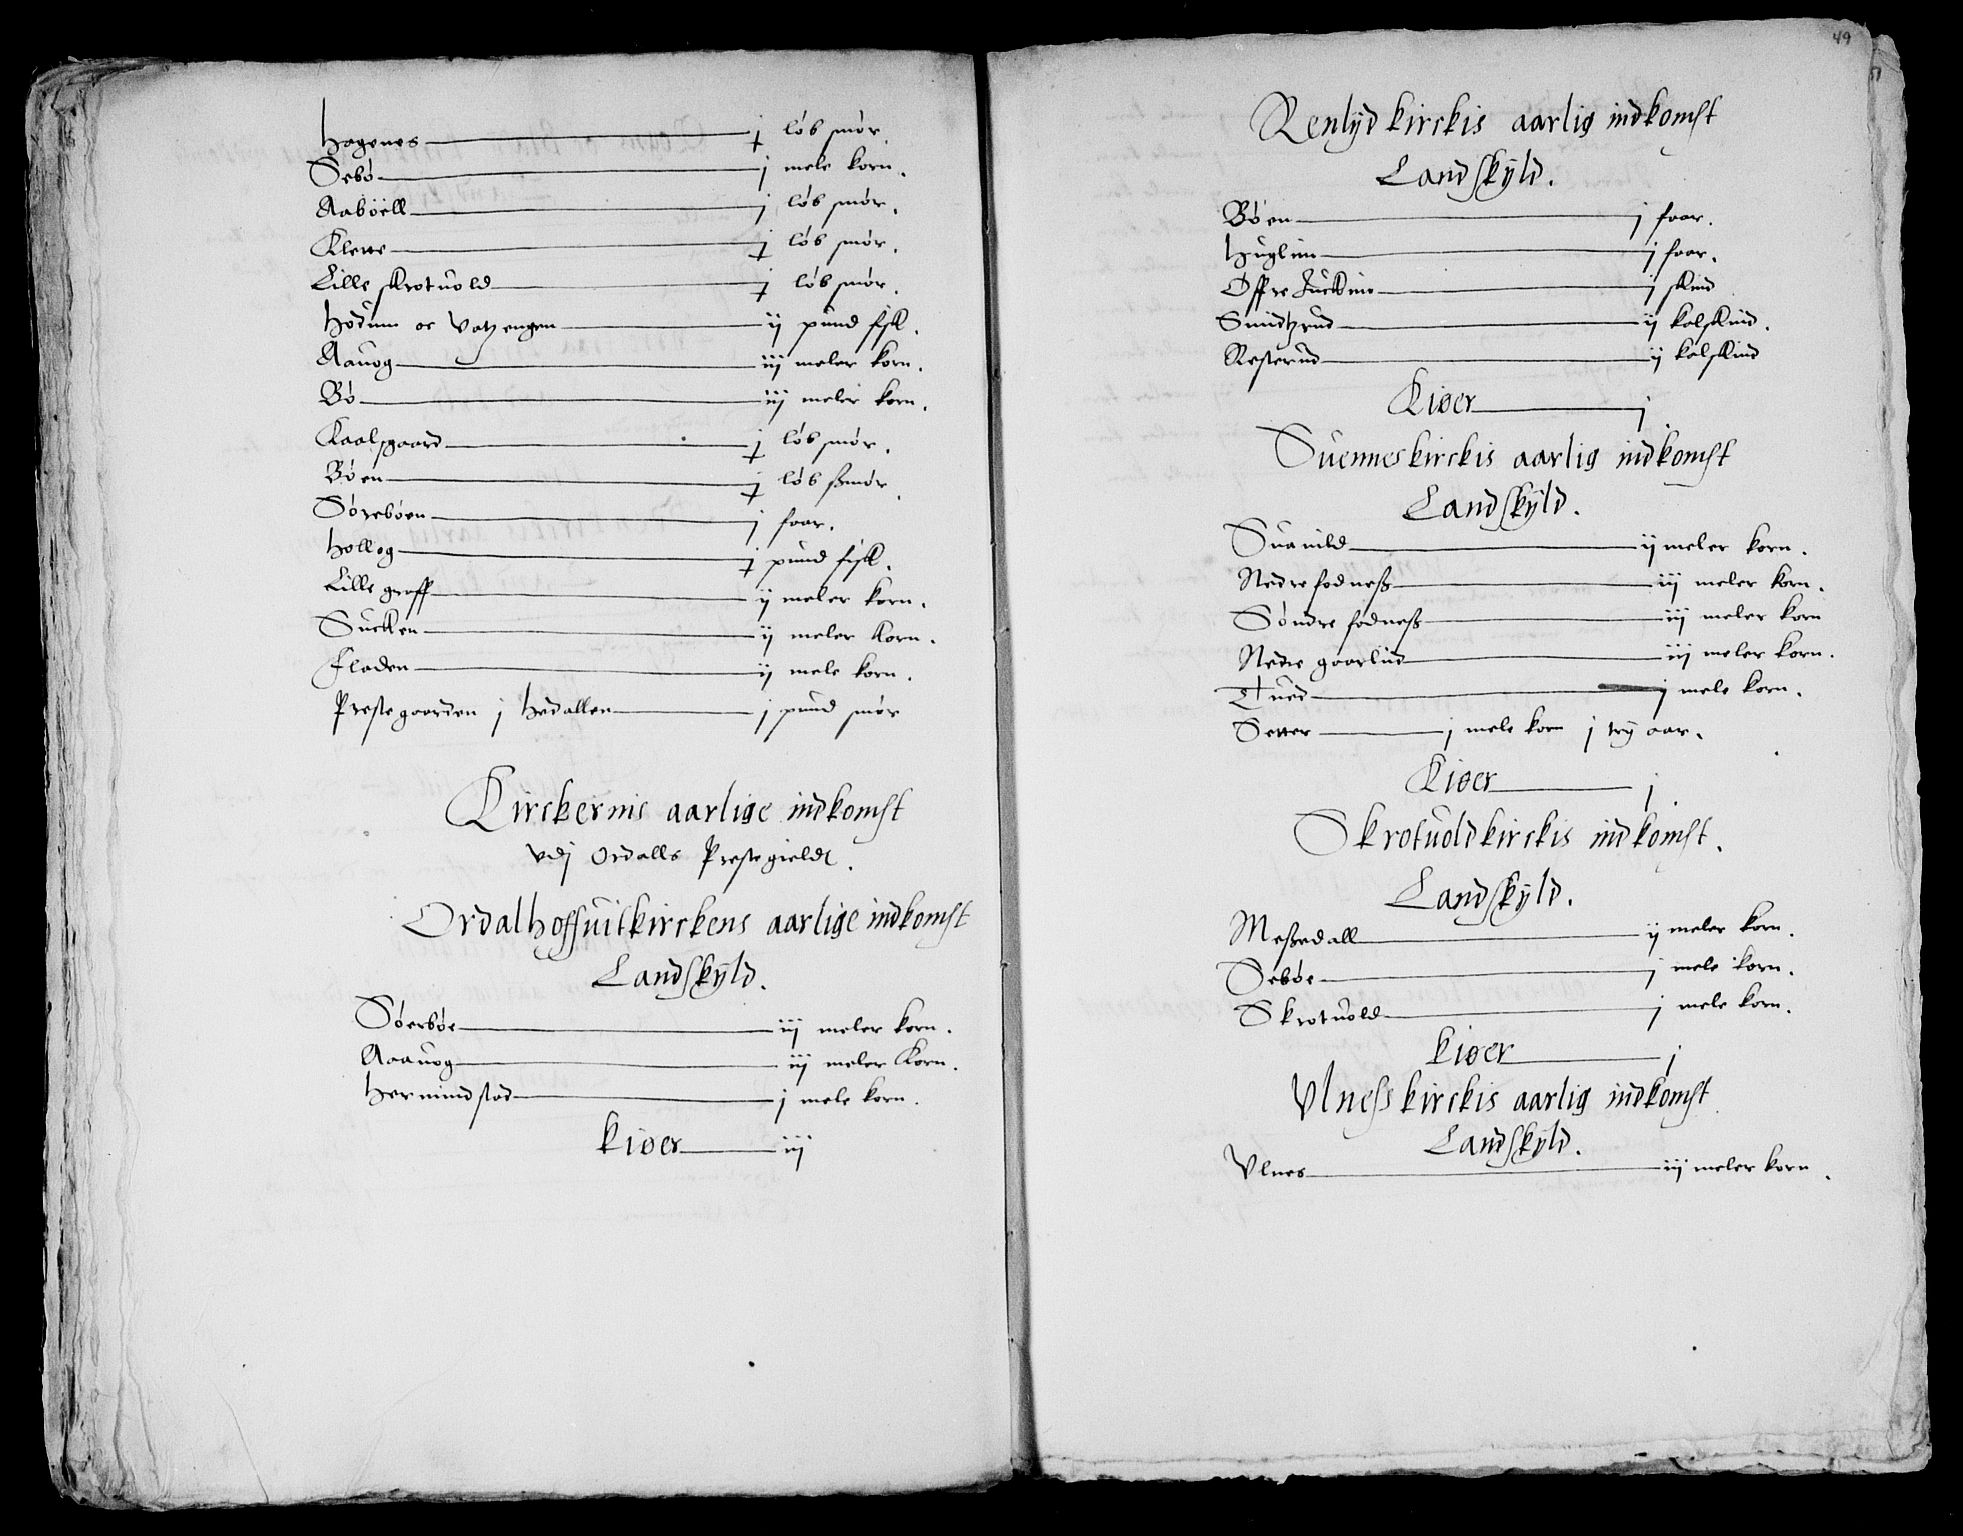 Hagenes j løb smør.
Sebø j mele korn.
Aabøell j løb smør.
Klette j løb smør.
Lille skrotuold j løb smør.
Hodum oc Vatzengen ij pund fisk.
Aauog iij meler korn.
Bø iij meler korn.
Kaalsgaard j løb smør.
Bøen j løb ßmør.
Sørebøen j faar.
Hollog j pund fisk.
Lille groff ij meler korn.
Sucken ij meler korn.
Fladen ij mele korn.
Prestegaarden j Hedallen j pund smør
Kirckernis aarlige indkomst
vdj Ordalls Prestegieldt.
Ordalhoffuitkirckens aarlige indkomst
Landskÿld.
Søerbøe iij meler korn.
Aaauog iij meler korn.
Hermindstad j mele korn.
kiøer iij
49
Renlÿd kirckis aarlig indkomst
Landskÿld.
Bøen j faar.
Huglim j faar.
Offre j skind
Smidtzrud ij kalskind.
Resterud ij kalskind
Kiøer j
Suenneskirckis aarlig indkomst
Landskÿld.
Suauild ij meler korn.
Nedre fodneß iij meler korn.
Søndre fodneß iij meler korn
Nedre gaarlud iij meler korn.
Tued j mele korn.
Setter j mele korn j trij aar.
Kiøer j
Skrotuoldkirckis indkomst.
Landskÿld.
Meßedall ij meler korn.
Sebøe j mele korn.
Skrotuold j mele korn.
kiøer j
Vlneßkirckis aarlig indkomst
Landskÿld.
Vlnes iij meler korn.